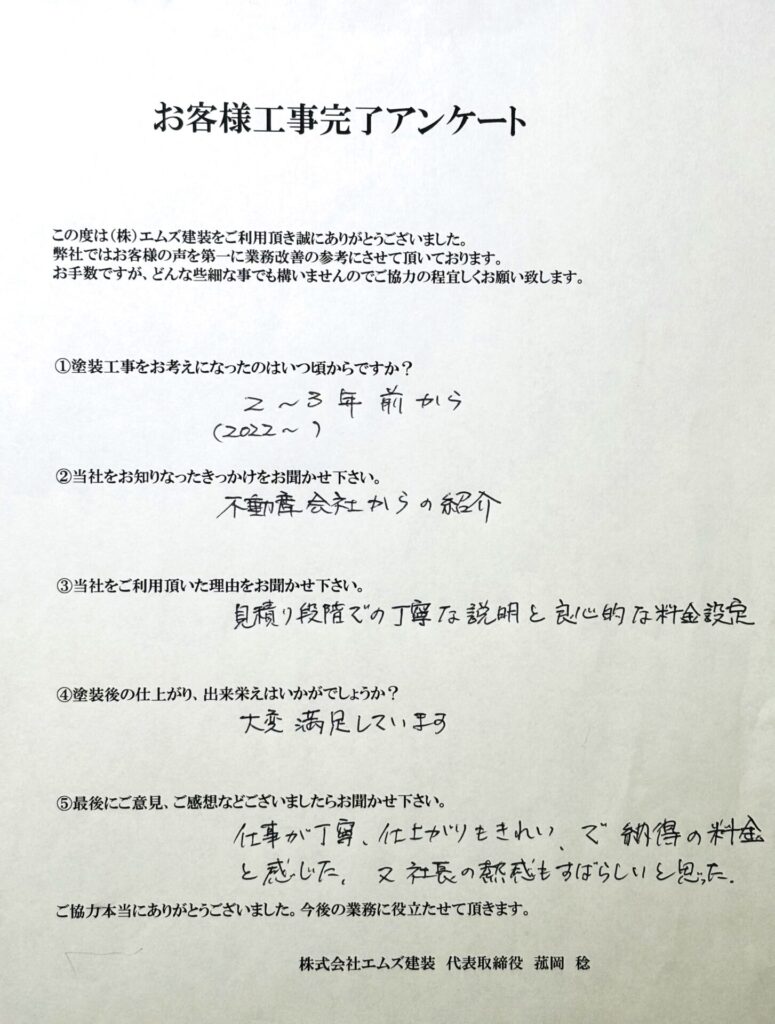 お客様工事完了アンケート
この度は(株)エムズ建装をご利用頂き誠にありがとうございました。
弊社ではお客様の声を第一に業務改善の参考にさせて頂いております。
お手数ですが、どんな些細な事でも構いませんのでご協力の程宜しくお願い致します。
①塗装工事をお考えになったのはいつ頃からですか?
2～3年前から
(2022～)
②当社をお知りなったきっかけをお聞かせ下さい。
不動産会社からの紹介
③当社をご利用頂いた理由をお聞かせ下さい。
見積り段階での丁寧な説明と良心的な料金設定
④塗装後の仕上がり、出来栄えはいかがでしょうか?
大変満足しています
⑤最後にご意見、ご感想などございましたらお聞かせ下さい。
仕事が丁寧、仕上がりもきれい、で納得の料金
と感じた、又社長の熱感もすばらしいと思った.
ご協力本当にありがとうございました。今後の業務に役立たせて頂きます。
株式会社エムズ建装 代表取締役 菰岡 稔